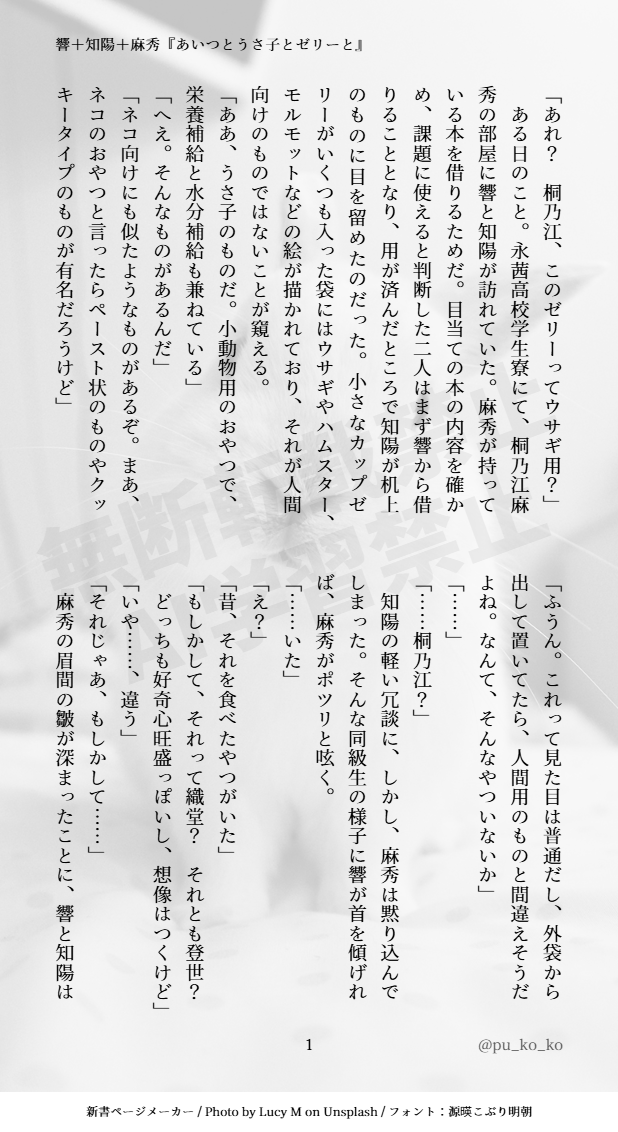 響＋知陽＋麻秀『あいつとうさ子とゼリーと』
「あれ？　桐乃江、このゼリーってウサギ用？」
　ある日のこと。永茜高校学生寮にて、桐乃江麻
秀の部屋に響と知陽が訪れていた。麻秀が持って
いる本を借りるためだ。目当ての本の内容を確か
め、課題に使えると判断した二人はまず響から借
りることとなり、用が済んだところで知陽が机上
のものに目を留めたのだった。小さなカップゼ
リーがいくつも入った袋にはウサギやハムスター、
モルモットなどの絵が描かれており、それが人間
向けのものではないことが窺える。
「ああ、うさ子のものだ。小動物用のおやつで、
栄養補給と水分補給も兼ねている」
「へえ。そんなものがあるんだ」
「ネコ向けにも似たようなものがあるぞ。まあ、
ネコのおやつと言ったらペースト状のものやクッ
キータイプのものが有名だろうけど」
「ふうん。これって見た目は普通だし、外袋から
出して置いてたら、人間用のものと間違えそうだ
よね。なんて、そんなやついないか」
「……」
「……桐乃江？」
　知陽の軽い冗談に、しかし、麻秀は黙り込んで
しまった。そんな同級生の様子に響が首を傾げれ
ば、麻秀がポツリと呟く。
「……いた」
「え？」
「昔、それを食べたやつがいた」
「もしかして、それって織堂？　それとも登世？
　どっちも好奇心旺盛っぽいし、想像はつくけど」
「いや……、違う」
「それじゃあ、もしかして……」
　麻秀の眉間の皺が深まったことに、響と知陽は
無断転載禁止
AI学習禁止
1
@pu_ko_ko
新書ページメーカー / Photo by Lucy M on Unsplash / フォント：源暎こぶり明朝